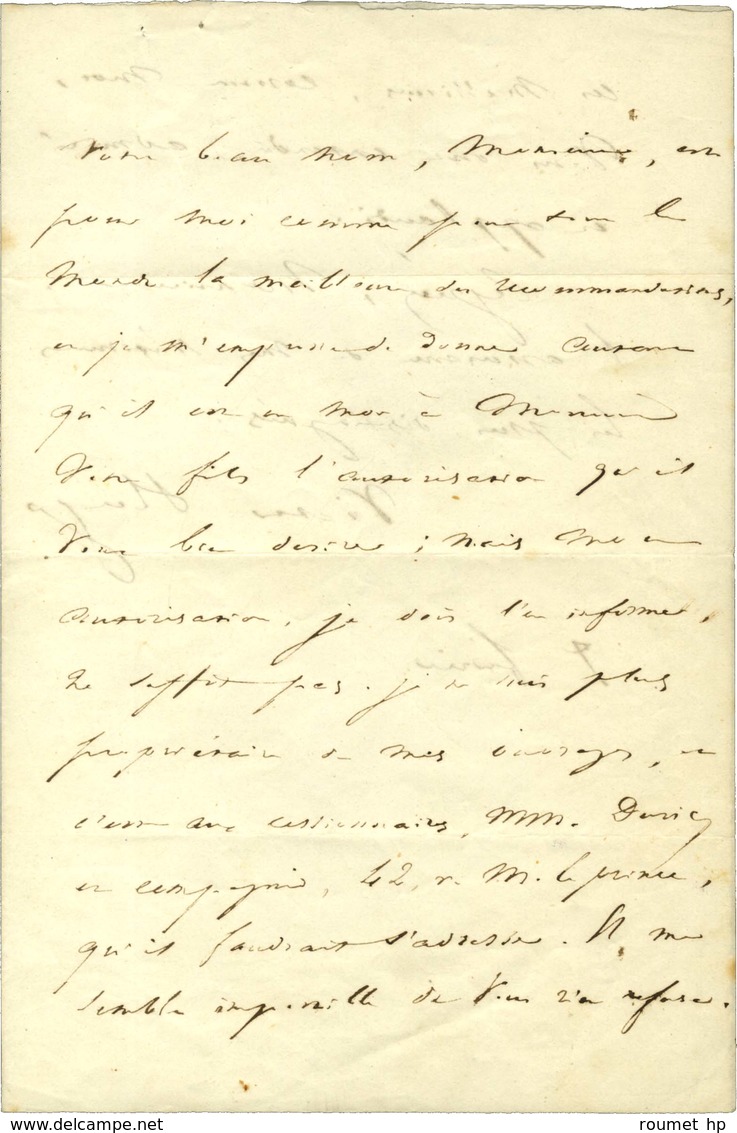 Votre beau nom, Monsieur, est
pour moi comme pour tout le
monde la meilleure des recommandations,
et je m'empresse de donner autant
qu'il est en moi à Monsieur
Votre fils l'autorisation qu'il
veut bien désirer ; mais mon
autorisation, je dois l'en informer,
ne suffit pas. je ne suis plus
propriétaire de mes ouvrages, et
c'est aux cessionnaires, MM. Duriez
et compagnie, 42, r. M. le prince,
qu'il faudrait s'adresser. Il me
semble impossible de vous rien refuser.
roumet hp